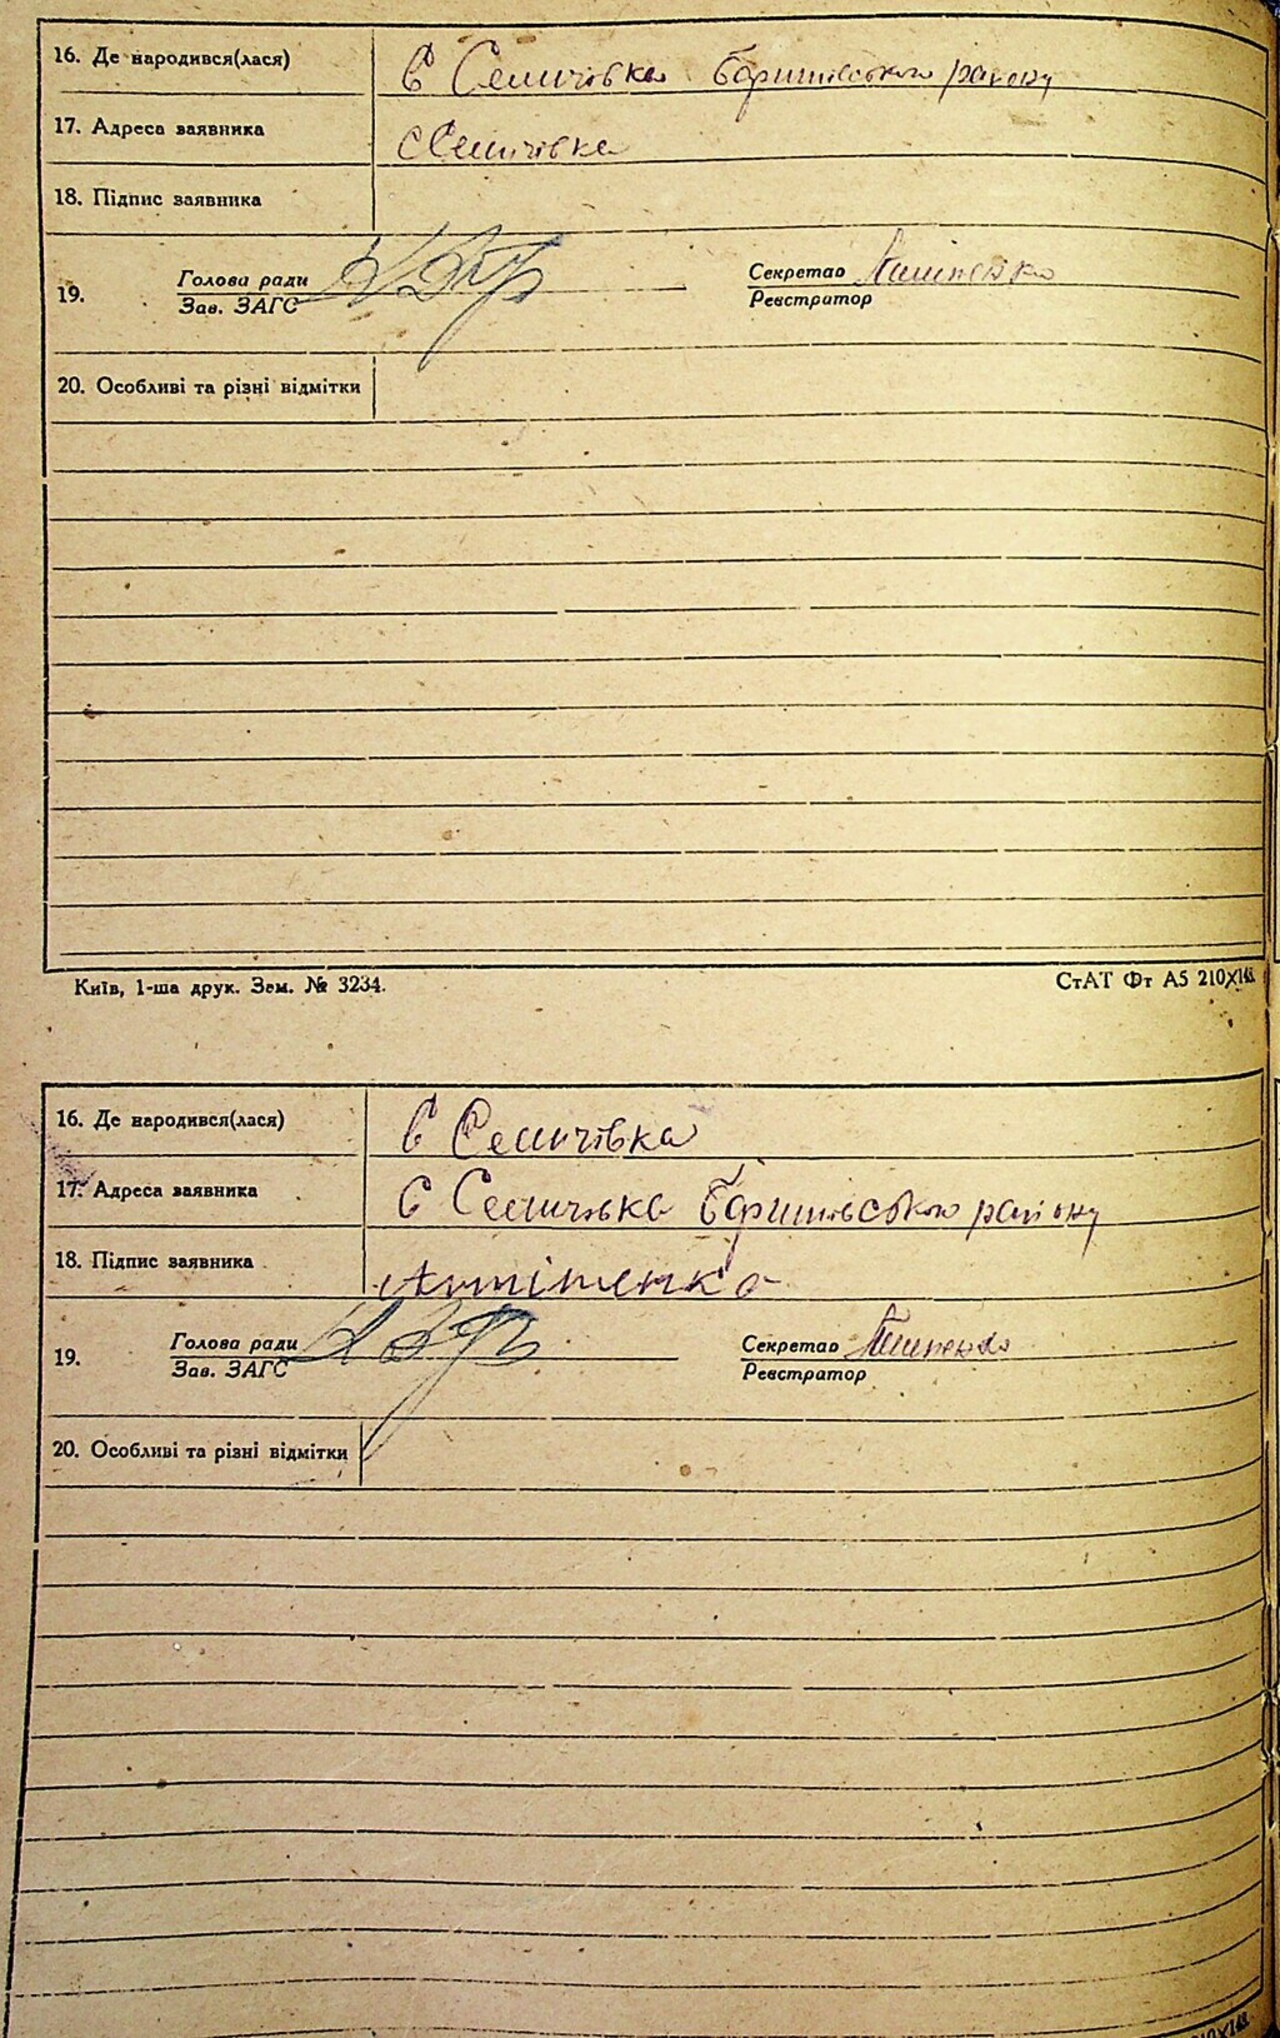 16. Де народився(лася) С Селичівка Баришівського району
17. Адреса заявника с Селичівка
18. Підпис заявника
19. Голова ради Секретар
Зав. ЗАГС Реєстратор
20. Особливі та різні відмітки
Київ, 1-ша друк. Зам. № 3234. СтАТ Фт А5 210X148.
16. Де народився(лася) С Селичівка
17. Адреса заявника С Селичівка Баришівського району
18. Підпис заявника
19. Голова ради Секретар
Зав. ЗАГС Реєстратор
20. Особливі та різні відмітки